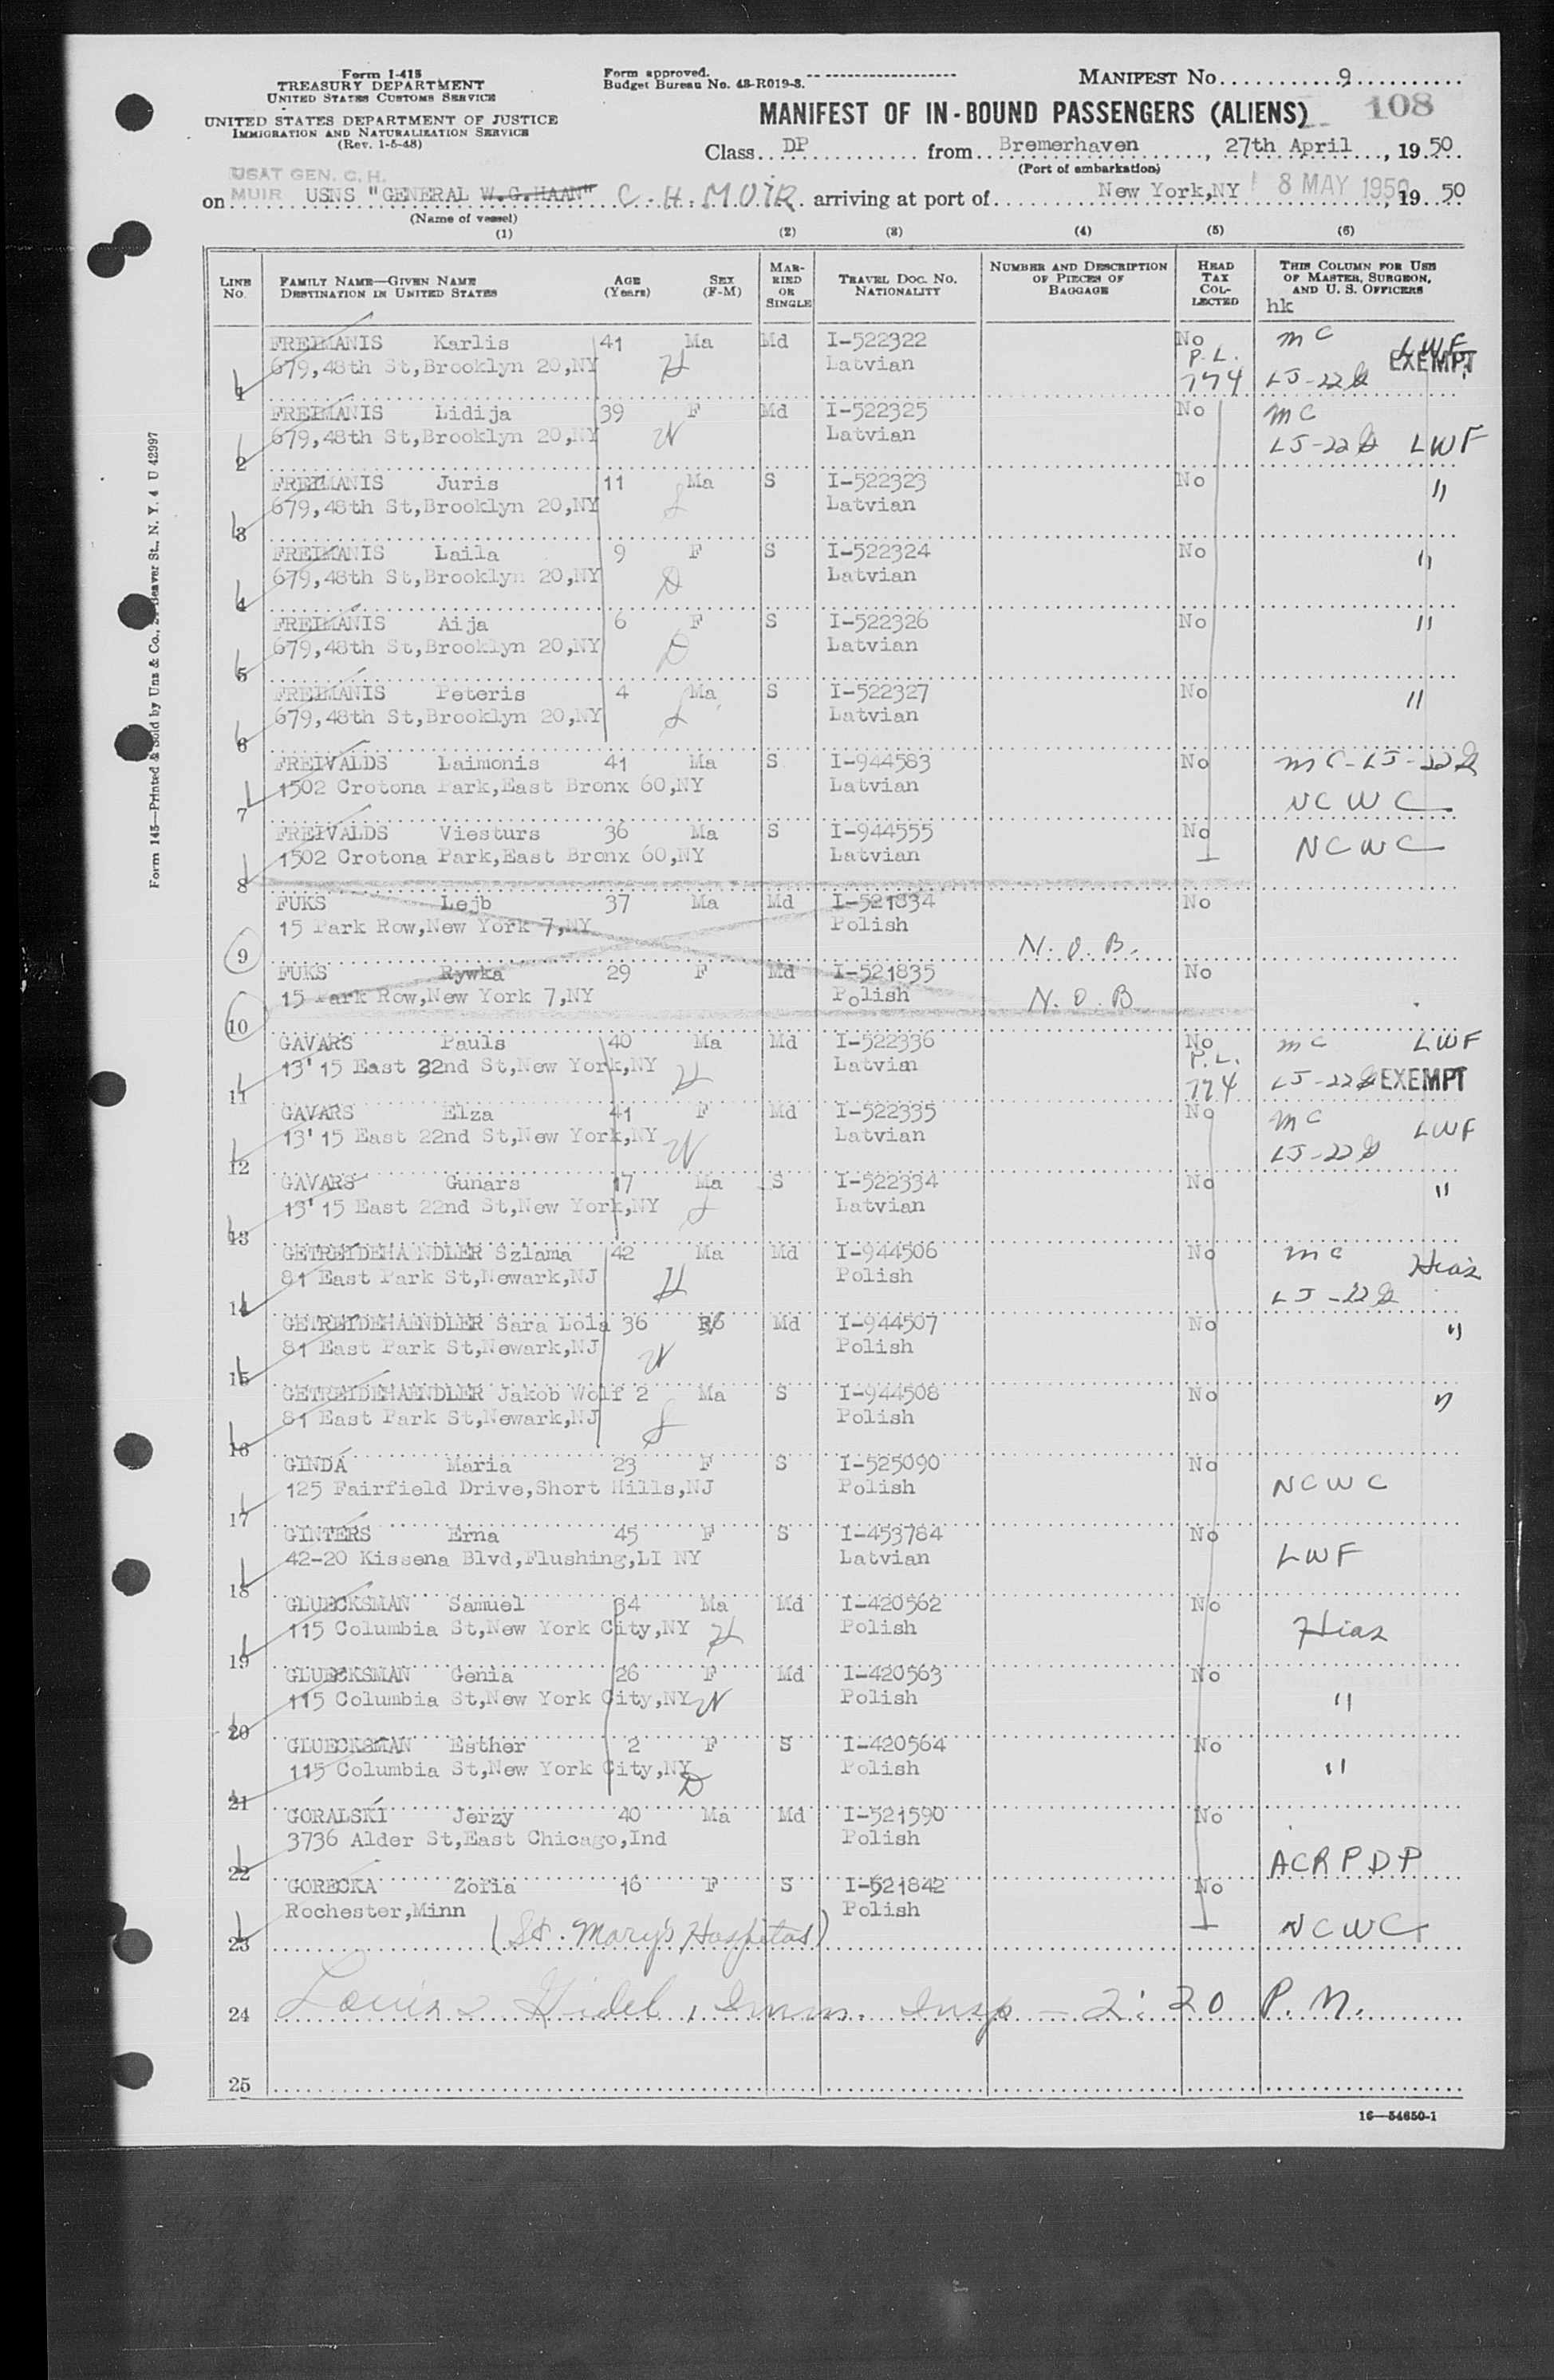 Form I-415
TREASURY DEPARTMENT
UNITED STATES CUSTOMS SERVICE
UNITED STATES DEPARTMENT OF JUSTICE
IMMIGRATION AND NATURALIZATION SERVICE
(Rev. 1-5-48)
Form approved.
Budget Bureau No. 43-R019-3.
MANIFEST No. 9
MANIFEST OF IN-BOUND PASSENGERS (ALIENS) 108
Class DP from Bremerhaven, 27th April, 1950
(Port of embarkation)
USAT GEN. C. H. MUIR
on USNS "GENERAL W.G.HAAN" C.H. MUIR arriving at port of New York,NY 8 MAY 1950, 1950
(Name of vessel)
(1) (2) (3) (4) (5) (6)
LINE No. FAMILY NAME—GIVEN NAME DESTINATION IN UNITED STATES AGE (Years) SEX (F-M) MARRIED OR SINGLE TRAVEL DOC. NO. NATIONALITY NUMBER AND DESCRIPTION OF PIECES OF BAGGAGE HEAD TAX COLLECTED THIS COLUMN FOR USE OF MASTER, SURGEON, AND U. S. OFFICERS
hk
FREIMANIS Karlis 41 Ma Md I-522322 No MC LWF
1 679,48th St,Brooklyn 20,NY H Latvian P.L. 774 LJ-22 EXEMPT
FREIMANIS Lidija 39 F Md I-522325 No MC
2 679,48th St,Brooklyn 20,NY W Latvian LJ-22 LWF
FREIMANIS Juris 11 Ma S I-522323 No "
3 679,48th St,Brooklyn 20,NY S Latvian
FREIMANIS Laila 9 F S I-522324 No "
4 679,48th St,Brooklyn 20,NY D Latvian
FREIMANIS Aija 6 F S I-522326 No "
5 679,48th St,Brooklyn 20,NY D Latvian
FREIMANIS Peteris 4 Ma S I-522327 No "
6 679,48th St,Brooklyn 20,NY S Latvian
FREIVALDS Laimonis 41 Ma S I-944583 No MC-LJ-22
7 1502 Crotona Park,East Bronx 60,NY Latvian NCWC
FREIVALDS Viesturs 36 Ma S I-944555 No NCWC
8 1502 Crotona Park,East Bronx 60,NY Latvian
FUKS Lejb 37 Ma Md I-521834 No
9 15 Park Row,New York 7,NY Polish N.O.B.
FUKS Rywka 29 F Md I-521835 No
10 15 Park Row,New York 7,NY Polish N.O.B
GAVARS Pauls 40 Ma Md I-522336 No MC LWF
11 13'15 East 22nd St,New York,NY H Latvian P.L. 774 LJ-22 EXEMPT
GAVARS Elza 41 F Md I-522335 No MC LWF
12 13'15 East 22nd St,New York,NY W Latvian LJ-22
GAVARS Gunars 17 Ma S I-522334 No "
13 13'15 East 22nd St,New York,NY S Latvian
GETREYDEHAENDLER Szlama 42 Ma Md I-944506 No MC Hias
14 81 East Park St,Newark,NJ H Polish LJ-22
GETREYDEHAENDLER Sara Lola 36 Md I-944507 No "
15 81 East Park St,Newark,NJ W Polish
GETREYDEHAENDLER Jakob Wolf 2 Ma S I-944508 No "
16 81 East Park St,Newark,NJ S Polish
GINDA Maria 23 F S I-525090 No
17 125 Fairfield Drive,Short Hills,NJ Polish NCWC
GINTERS Erna 45 F S I-453784 No
18 42-20 Kissena Blvd,Flushing,LI NY Latvian LWF
GLUECKSMAN Samuel 34 Ma Md I-420562 No
19 115 Columbia St,New York City,NY H Polish Hias
GLUECKSMAN Genia 26 F Md I-420563 No
20 115 Columbia St,New York City,NY W Polish "
GLUECKSMAN Esther 2 F S I-420564 No
21 115 Columbia St,New York City,NY D Polish "
GORALSKI Jerzy 40 Ma Md I-521590 No
22 3736 Alder St,East Chicago,Ind Polish ACRPDP
GORECKA Zofia 16 F S I-521842 No
23 Rochester,Minn (St. Mary's Hospital) Polish NCWC
24 Louis Gidel, Imm. Insp - 2:20 P.M.
25
16—54650-1
Form 145—Printed & Sold by Unz & Co., Beaver St., N. Y. 4 U 42997